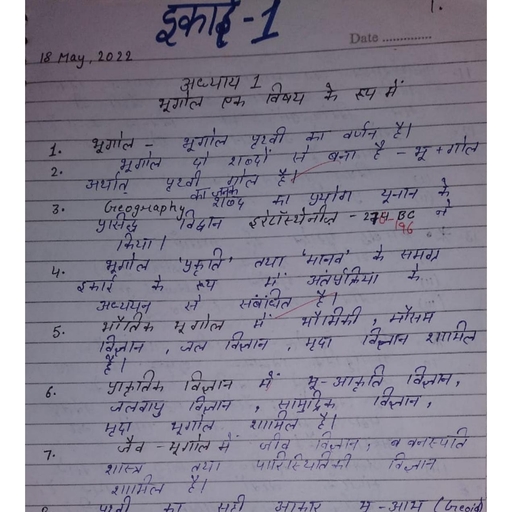 इकाई-1
1.
Date
18 May, 2022
अध्याय 1
भूगोल एक विषय के रूप में
1. भूगोल - भूगोल पृथ्वी का वर्णन है।
2. भूगोल दो शब्दों से बना है - भू + गोल
अर्थात् पृथ्वी गोल है।
3. Geography शब्द का प्रयोग यूनान के
प्रसिद्ध विद्वान इरेटॉस्थेनीज - BC ने
196
किया।
4. भूगोल 'प्रकृति' तथा 'मानव' के समग्र
इकाई के रूप में अंतर्प्रक्रिया के
अध्ययन से संबंधित है।
5. भौतिक भूगोल में भौमिकी, मौसम
विज्ञान, जल विज्ञान, मृदा विज्ञान शामिल
हैं।
6. प्राकृतिक विज्ञान में भू-आकृति विज्ञान,
जलवायु विज्ञान, सामुद्रिक विज्ञान,
मृदा भूगोल शामिल है।
7. जैव-भूगोल में जीव विज्ञान, व वनस्पति
शास्त्र तथा पारिस्थितिकी विज्ञान
शामिल है।
पृथ्वी का सही आकार भू-आभ (Geoid)